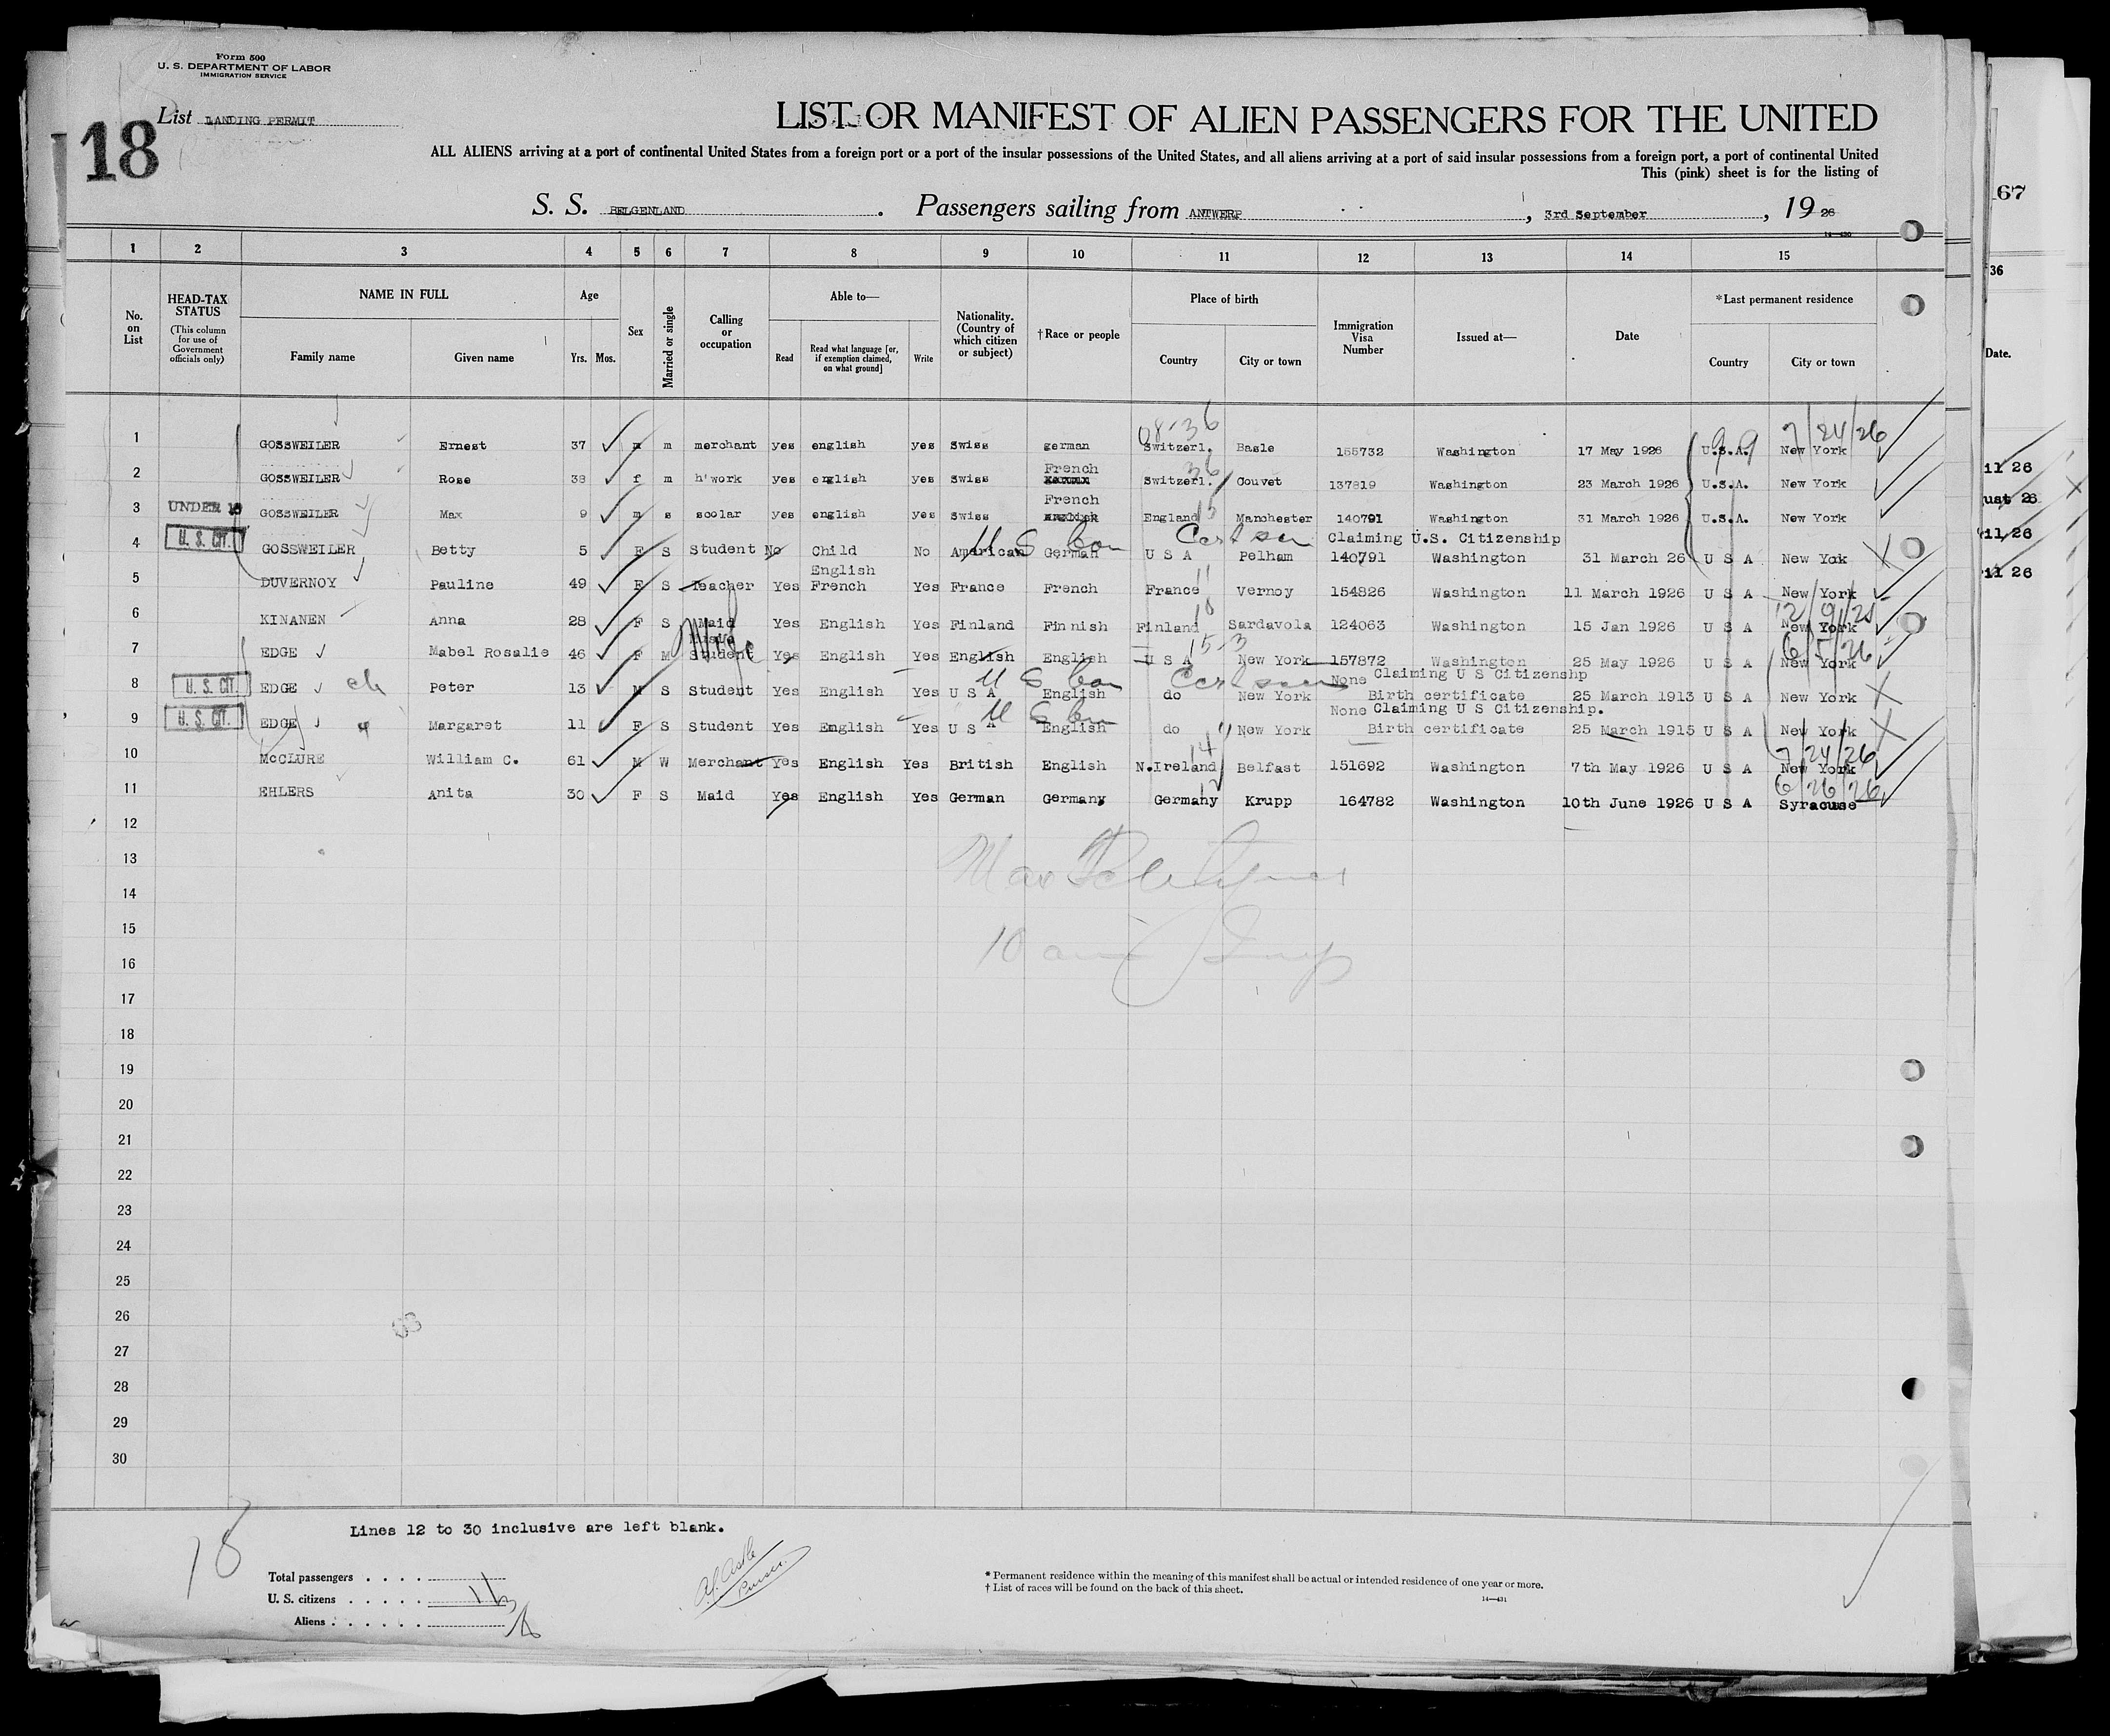 Form 500
U. S. DEPARTMENT OF LABOR
IMMIGRATION SERVICE
List LANDING PERMIT
18
LIST OR MANIFEST OF ALIEN PASSENGERS FOR THE UNITED
ALL ALIENS arriving at a port of continental United States from a foreign port or a port of the insular possessions of the United States, and all aliens arriving at a port of said insular possessions from a foreign port, a port of continental United
This (pink) sheet is for the listing of
S. S. BELGENLAND. Passengers sailing from ANTWERP, 3rd September, 1926
14—430
67
1 2 3 4 5 6 7 8 9 10 11 12 13 14 15
36
No. on List
HEAD-TAX STATUS (This column for use of Government officials only)
NAME IN FULL Family name Given name
Age Yrs. Mos.
Sex
Married or single
Calling or occupation
Able to— Read Read what language [or, if exemption claimed, on what ground] Write
Nationality. (Country of which citizen or subject)
†Race or people
Place of birth Country City or town
Immigration Visa Number
Issued at—
Date
*Last permanent residence Country City or town
Date.
08-36 99 7/24/26
1 GOSSWEILER Ernest 37 m m merchant yes english yes Swiss german Switzerl. Basle 155732 Washington 17 May 1926 U.S.A. New York
French 36
2 GOSSWEILER Rose 38 f m h'work yes english yes Swiss Switzerl. Couvet 137819 Washington 23 March 1926 U.S.A. New York
il 26
French 15
3 UNDER 16 GOSSWEILER Max 9 m s scolar yes english yes Swiss English England Manchester 140791 Washington 31 March 1926 U.S.A. New York
ust 26
U S born Cert seen Claiming U.S. Citizenship
4 U. S. CIT. GOSSWEILER Betty 5 F S Student No Child No American German U S A Pelham 140791 Washington 31 March 26 U S A New Yok
il 26
English 11
5 DUVERNOY Pauline 49 F S Teacher Yes French Yes France French France Vernoy 154826 Washington 11 March 1926 U S A New York
il 26
10 12/9/25
6 KINANEN Anna 28 F S Maid Yes English Yes Finland Finnish Finland Sardavola 124063 Washington 15 Jan 1926 U S A New York
Wife 15-3 6/5/26
7 EDGE Mabel Rosalie 46 F M Student Yes English Yes English English U S A New York 157872 Washington 25 May 1926 U S A New York
U S born Cert seen None Claiming U S Citizenshp
8 U. S. CIT. EDGE ch Peter 13 M S Student Yes English Yes U S A English do New York Birth certificate 25 March 1913 U S A New York
U S born None Claiming U S Citizenship.
9 U. S. CIT. EDGE Margaret 11 F S Student Yes English Yes U S A English do New York Birth certificate 25 March 1915 U S A New York
14 7/24/26
10 McCLURE William C. 61 M W Merchant Yes English Yes British English N.Ireland Belfast 151692 Washington 7th May 1926 U S A New York
12 6/26/26
11 EHLERS Anita 30 F S Maid Yes English Yes German Germany Germany Krupp 164782 Washington 10th June 1926 U S A Syracuse
12
13
14
15
16
17
18
19
20
21
22
23
24
25
26
27
28
29
30
Lines 12 to 30 inclusive are left blank.
18
Total passengers . . . . 11
U. S. citizens . . . . . 3
Aliens . . . . . . 8
Purser.
* Permanent residence within the meaning of this manifest shall be actual or intended residence of one year or more.
† List of races will be found on the back of this sheet.
14—431